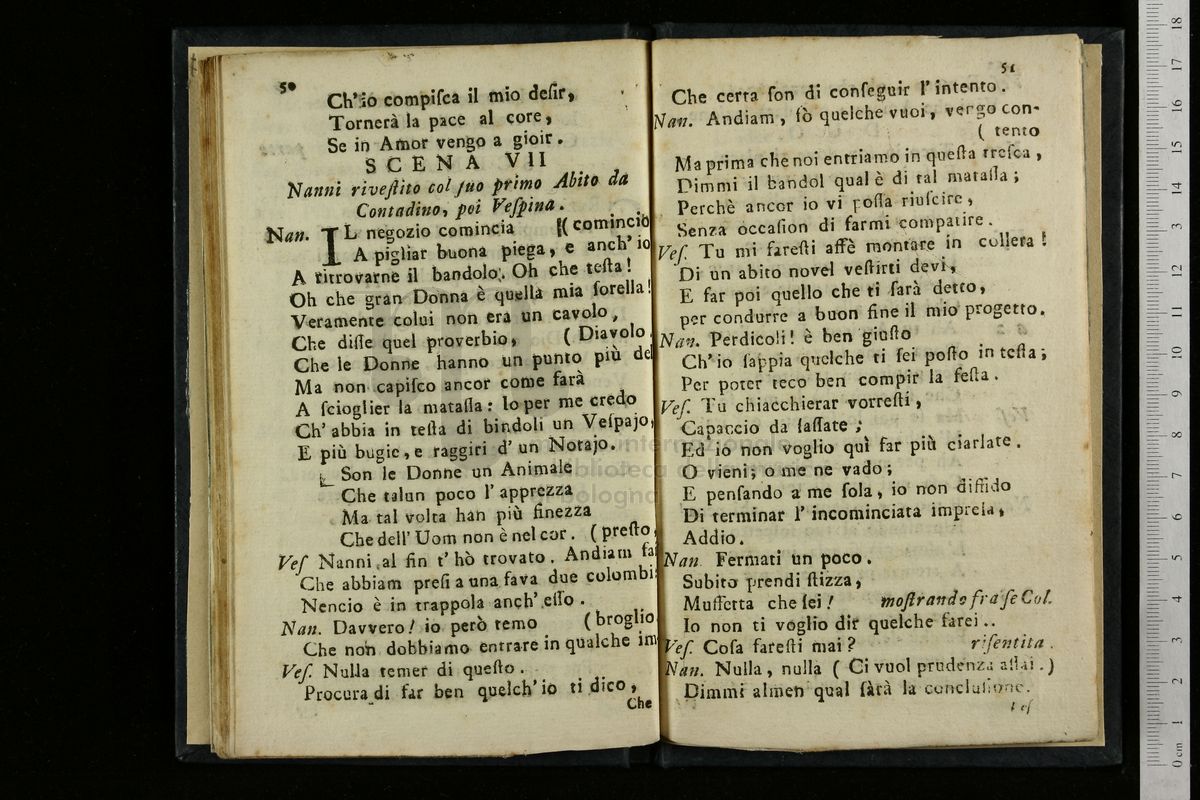 50
Ch' io compiſca il mio deſir,
Tornerà la pace al core,
Se in Amor vengo a gioir.
SCENA VII
Nanni riveſtito col ſuo primo Abito da
Contadino, poi Veſpina.
Nan. IL negozio comincia (cominciò
A pigliar buona piega, e anch' io
A ritrovarne il bandolo. Oh che teſta!
Oh che gran Donna è quella mia ſorella!
Veramente colui non era un cavolo,
Che diſſe quel proverbio, (Diavolo
Che le Donne hanno un punto più del
Ma non capiſco ancor come farà
A ſcioglier la mataſſa: Io per me credo
Ch' abbia in teſta di bindoli un Veſpajo,
E più bugie, e raggiri d' un Notajo.
Son le Donne un Animale
Che talun poco l' apprezza
Ma tal volta han più finezza
Che dell' Uom non è nel cor. (preſto,
Veſ Nanni al fin t' hò trovato. Andiam fa
Che abbiam preſi a una fava due colombi:
Nencio è in trappola anch' eſſo.
Nan. Davvero! io però temo (broglio
Che non dobbiamo entrare in qualche im
Veſ. Nulla temer di queſto.
Procura di far ben quelch' io ti dico,
Che
51
Che certa ſon di conſeguir l' intento.
Nan. Andiam, fò quelche vuoi, vergo con-
(tento
Ma prima che noi entriamo in queſta treſca,
Dimmi il bandol qual è di tal mataſſa;
Perchè ancor io vi poſſa riuſcire,
Senza occaſion di farmi compatire.
Veſ. Tu mi fareſti affè montare in collera!
Di un abito novel veſtirti devi,
E far poi quello che ti ſarà detto,
per condurre a buon fine il mio progetto.
Nan. Perdicoli! è ben giuſto
Ch' io ſappia quelche ti ſei poſto in teſta;
Per poter teco ben compir la feſta.
Veſ. Tu chiacchierar vorreſti,
Capaccio da ſaſſate;
Ed io non voglio quì far più ciarlate.
O vieni; o me ne vado;
E penſando a me ſola, io non diffido
Di terminar l' incominciata impreſa,
Addio.
Nan Fermati un poco.
Subito prendi ſtizza,
Muffetta che ſei! moſtrando fra ſe Col.
Io non ti voglio dir quelche farei..
Veſ. Coſa fareſti mai? riſentita.
Nan. Nulla, nulla (Ci vuol prudenza aſſai.)
Dimmi almen qual ſarà la concluſione.
Veſ